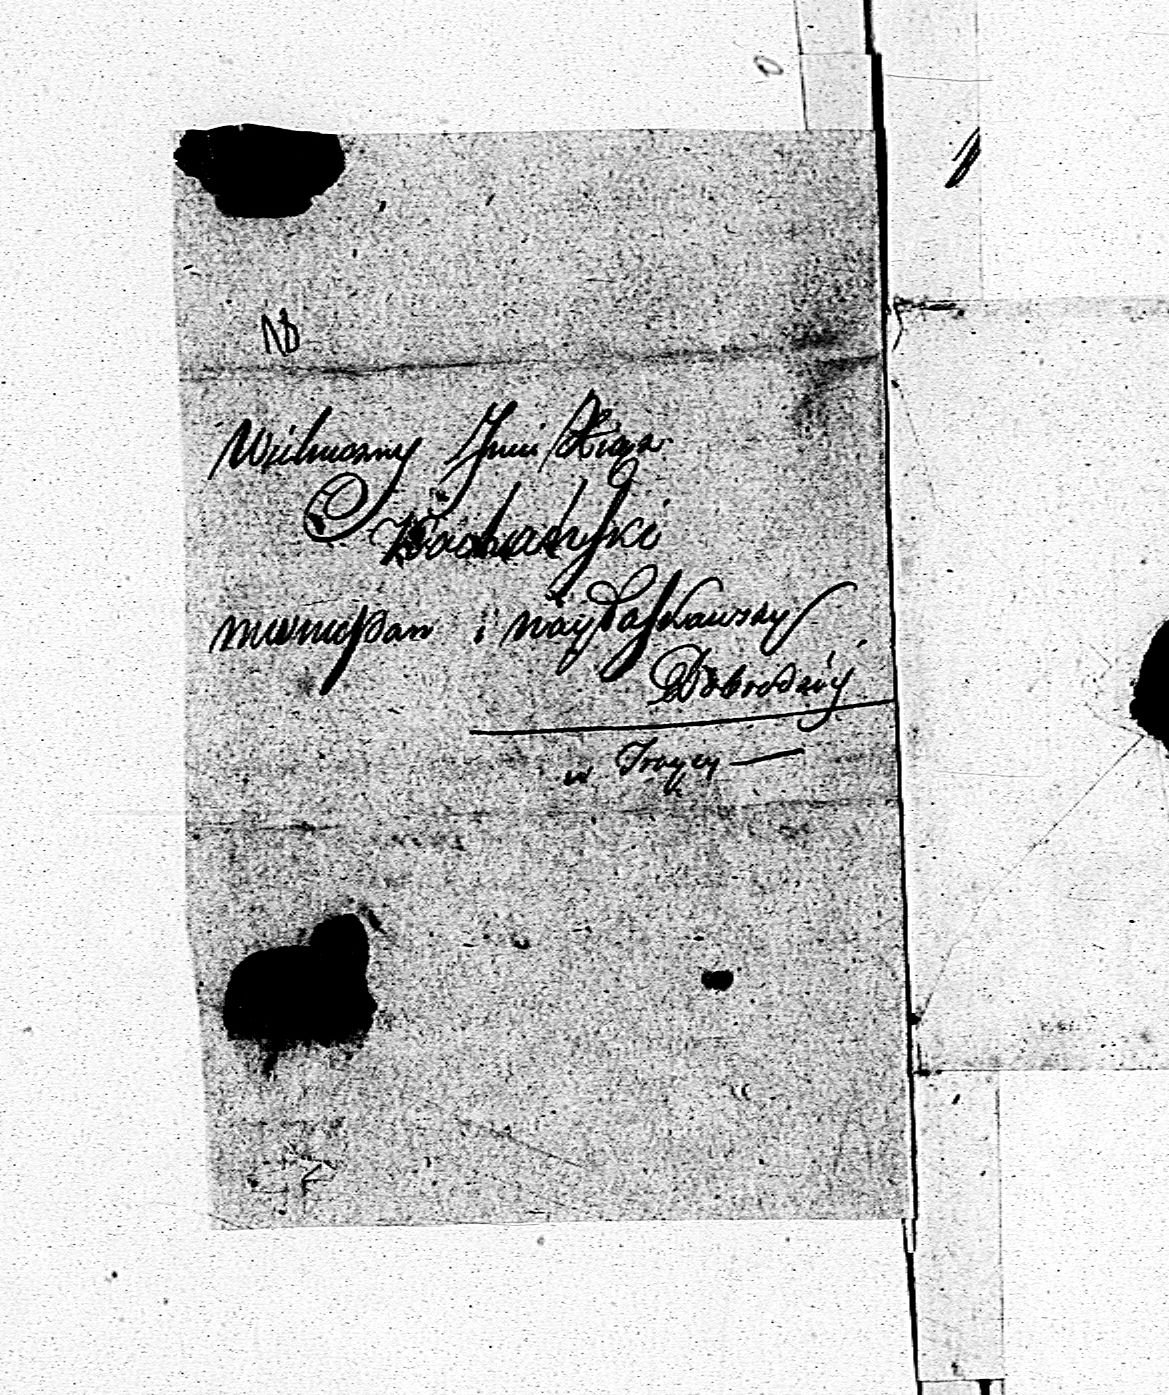 NB
Wielmożny Jmci Xiąz
Kochański
mnie Pan i nayłaskawszy
Dobrodziej
w Troycy —